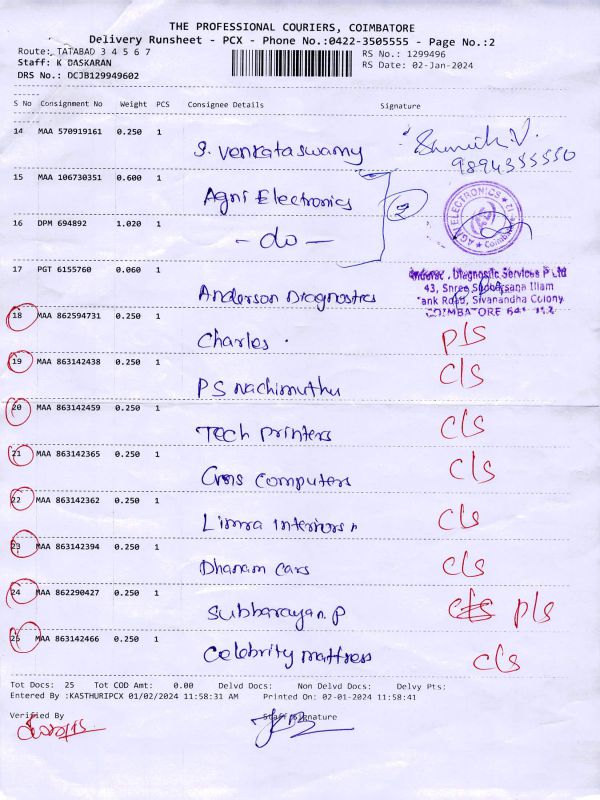 THE PROFESSIONAL COURIERS, COIMBATORE
Delivery Runsheet - PCX - Phone No.:0422-3505555 - Page No.:2
Route: TATABAD 3 4 5 6 7 RS No.: 1299496
Staff: K DASKARAN RS Date: 02-Jan-2024
DRS No.: DCJB129949602
S No Consignment No Weight PCS Consignee Details Signature
14 MAA 570919161 0.250 1 S. Venkataswamy
9894355550
15 MAA 106730351 0.600 1 Agni Electronics 2
AGNI ELECTRONICS
16 DPM 694892 1.020 1 - do -
17 PGT 6155760 0.060 1 Anderson Diagnostics
Diagnostic Services P Ltd
43, Shree Illam
Tank Road, Sivanandha Colony
COIMBATORE
18 MAA 862594731 0.250 1 Charles . p/s
19 MAA 863142438 0.250 1 PS Nachimuthu c/s
20 MAA 863142459 0.250 1 Tech Printers c/s
21 MAA 863142365 0.250 1 Gms Computers c/s
22 MAA 863142362 0.250 1 Limra Interiors c/s
23 MAA 863142394 0.250 1 Dhanam Cars c/s
24 MAA 862290427 0.250 1 Subbarayan. P c/s p/s
25 MAA 863142466 0.250 1 Celebrity mattress c/s
Tot Docs: 25 Tot COD Amt: 0.00 Delvd Docs: Non Delvd Docs: Delvy Pts:
Entered By :KASTHURIPCX 01/02/2024 11:58:31 AM Printed On: 02-01-2024 11:58:41
Verified By Staff Signature